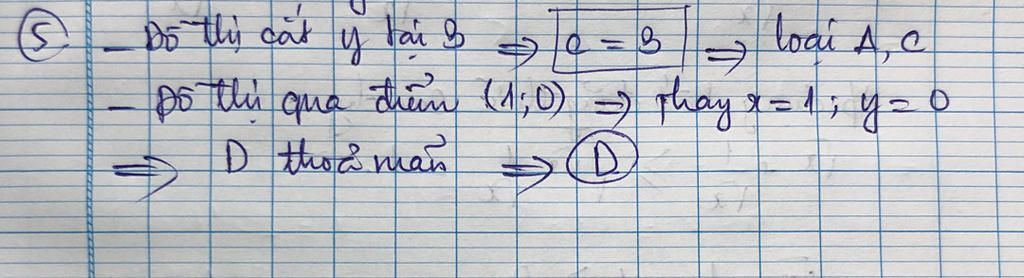 ⑤ - Đồ thị cắt y tại 3 ⇒ c = 3 ⇒ loại A, C
- Đồ thị qua điểm (1;0) ⇒ thay x = 1 ; y = 0
⇒ D thoả mãn ⇒ D